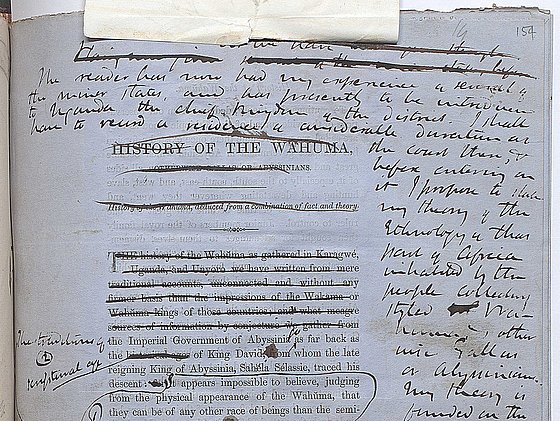 154
The reader has now had my experience of several of
the minor states and has presently to be introduced
to Uganda the chief Kingdom of the district. I shall
have to record a residence of considerable duration at
the court there; &
before entering on
it I propose to state
my theory of the
Ethnology of that
part of Africa
inhabited by the
people collectively
styled Wa-
huma other
wise Gallas
or Abyssinians.
My theory is
founded on the
HISTORY OF THE WAHUMA,
OR ABYSSINIANS.
deduced from a combination of fact and theory.
THE history of the Wahüma as gathered in Karagwé,
Uganda, and Unyoro we have written from mere
traditional accounts, unconnected and without any
firmer basis than the impressions of the Wakama or
Wahüma kings of those countries; and what meagre
sources of information by conjecture we gather from
the Imperial Government of Abyssinia as far back as
the of King David, from whom the late
reigning King of Abyssinia, Sahéla Sélassie, traced his
descent: appears impossible to believe, judging
from the physical appearance of the Wahüma, that
they can be of any other race of beings than the semi-
The traditions of
2
scriptural age